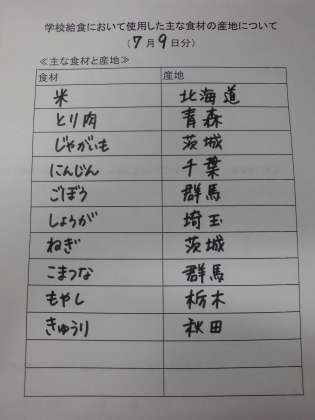 学校給食において使用した主な食材の産地について
(7月9日分)
≪主な食材と産地≫
食材 産地
米 北海道
とり肉 青森
じゃがいも 茨城
にんじん 千葉
ごぼう 群馬
しょうが 埼玉
ねぎ 茨城
こまつな 群馬
もやし 栃木
きゅうり 秋田